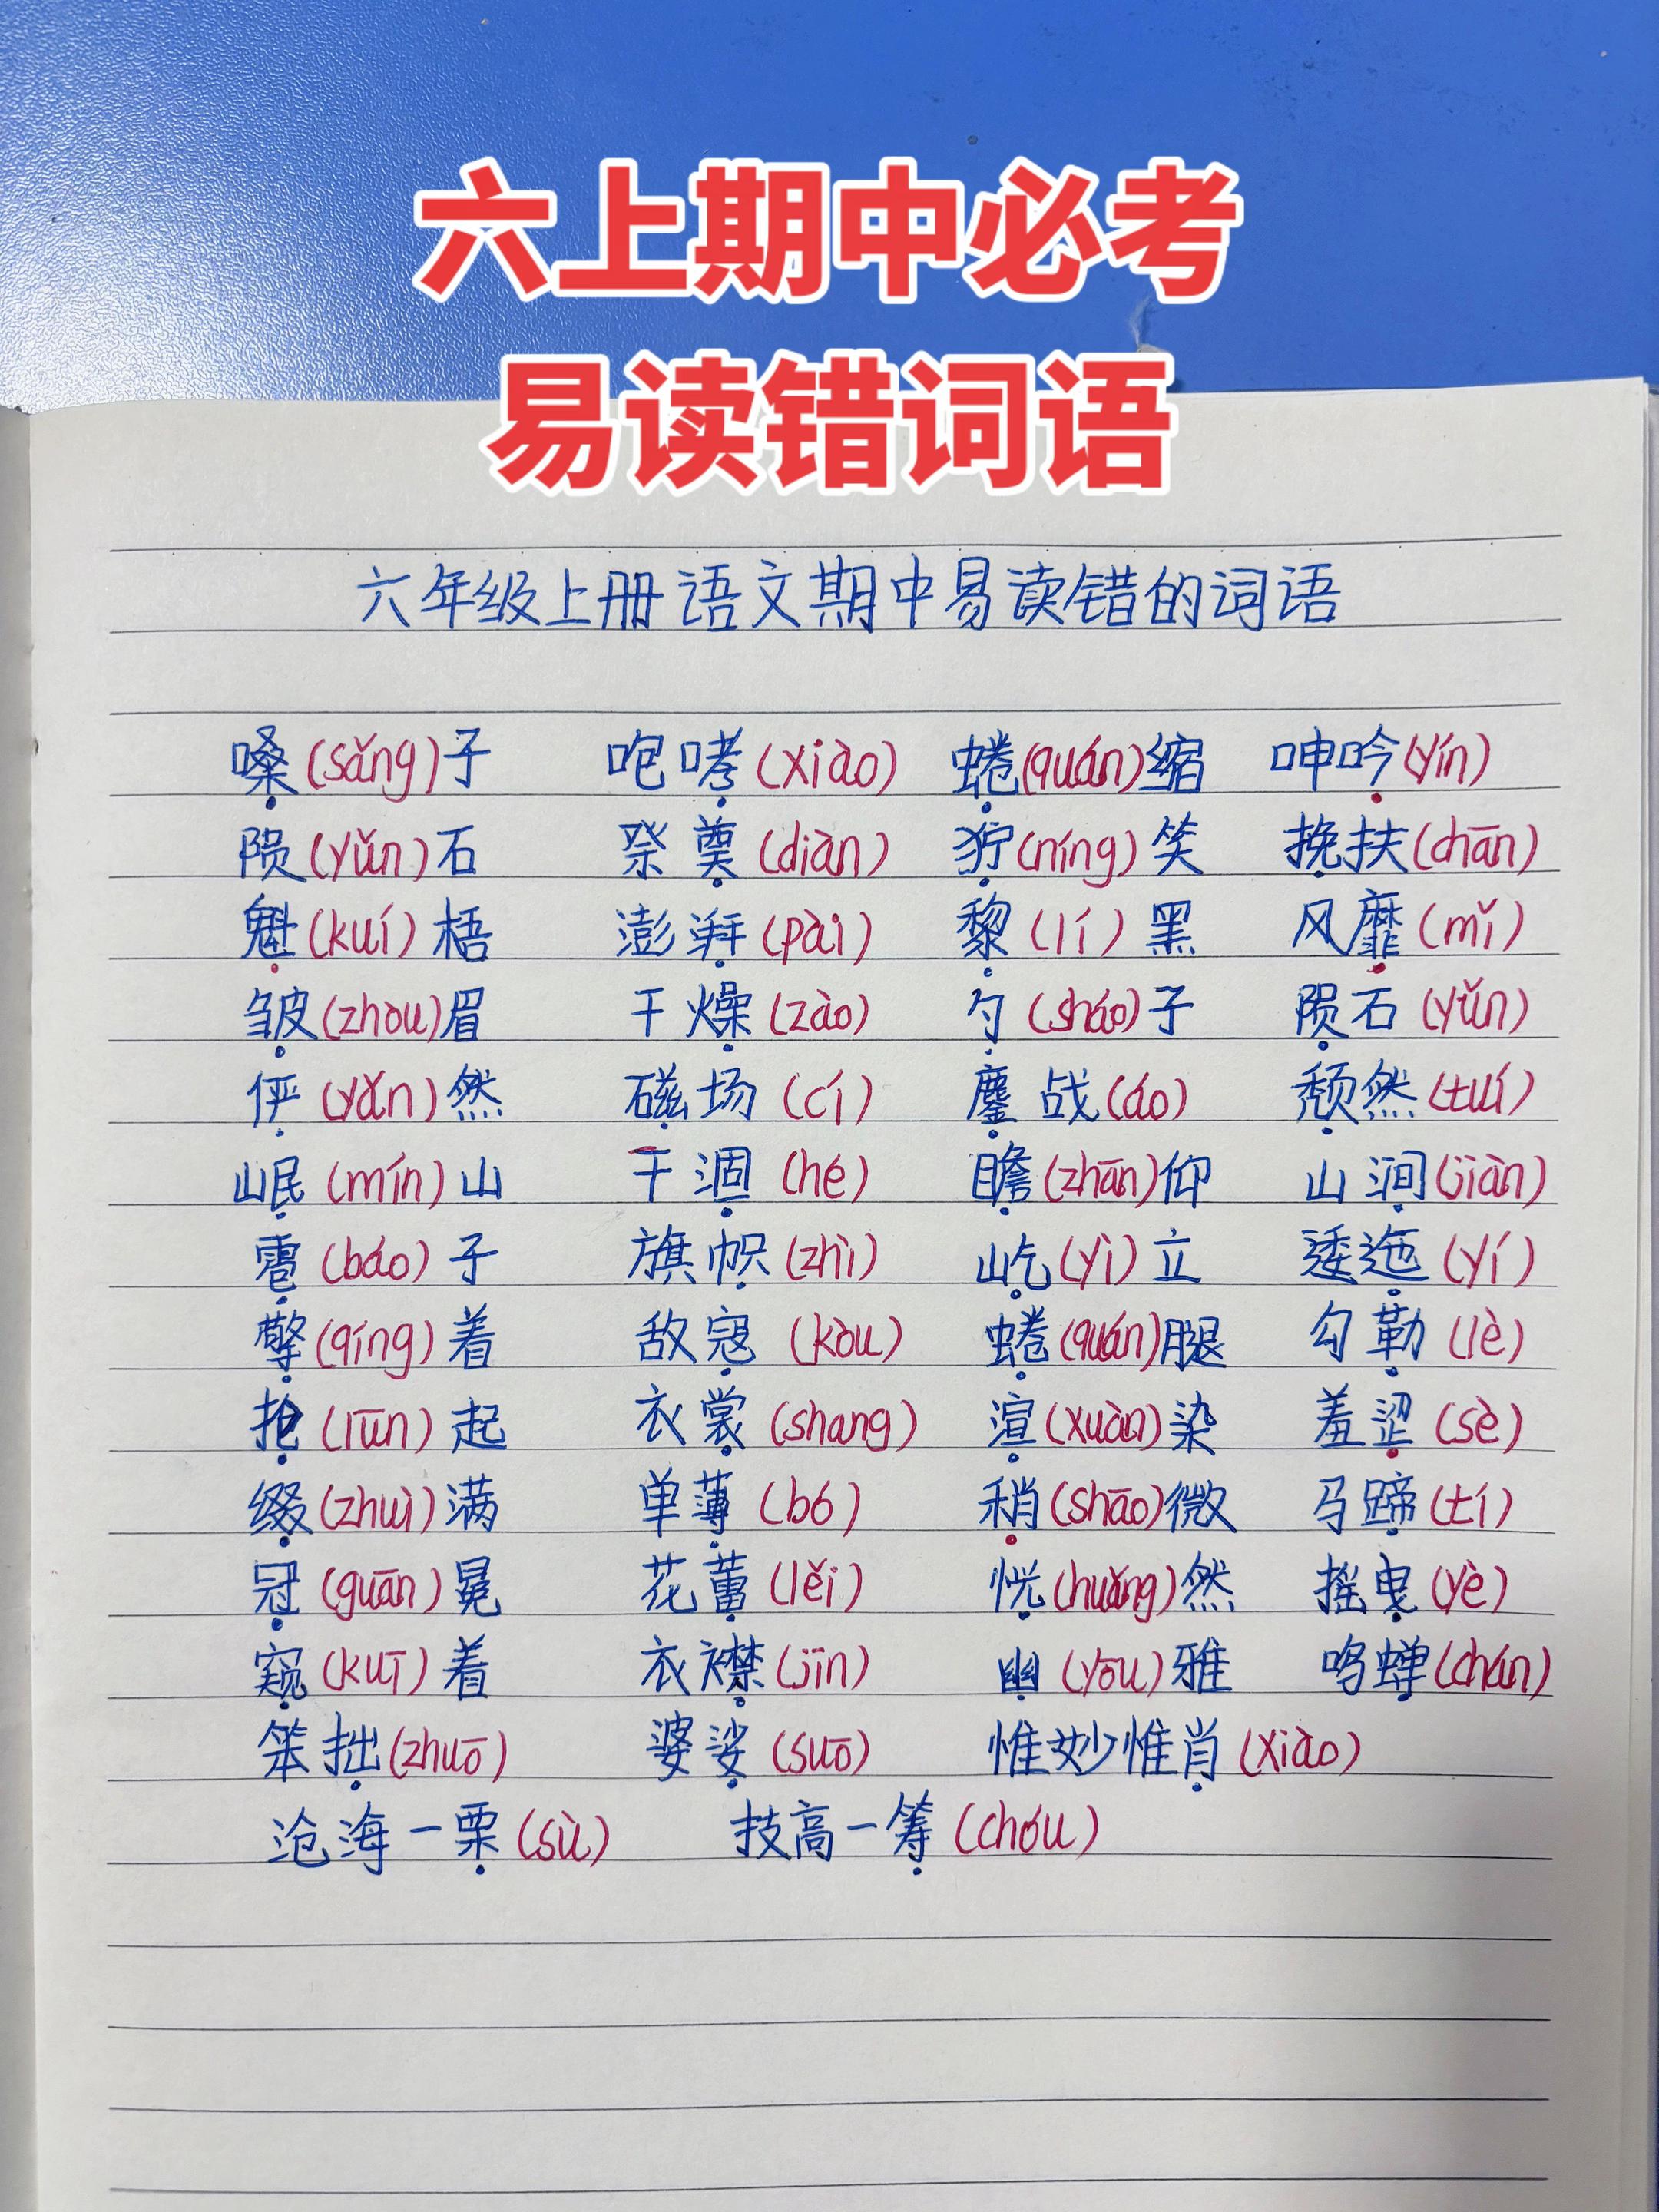 六上期中必考
易读错词语
六年级上册语文期中易读错的词语
嗓(sǎng)子 咆哮(xiào) 蜷(quán)缩 呻吟(yín)
陨(yǔn)石 祭奠(diàn) 狞(níng)笑 搀扶(chān)
魁(kuí)梧 澎湃(pài) 黎(lí)黑 风靡(mǐ)
皱(zhòu)眉 干燥(zào) 勺(sháo)子 陨石(yǔn)
俨(yǎn)然 磁场(cí) 鏖战(áo) 颓然(tuí)
岷(mín)山 干涸(hé) 瞻(zhān)仰 山涧(jiàn)
雹(báo)子 旗帜(zhì) 屹(yì)立 逶迤(yí)
擎(qíng)着 敌寇(kòu) 蜷(quán)腿 勾勒(lè)
抡(lūn)起 衣裳(shang) 渲(xuàn)染 羞涩(sè)
缀(zhuì)满 单薄(bó) 稍(shāo)微 马蹄(tí)
冠(guān)冕 花蕾(lěi) 恍(huǎng)然 摇曳(yè)
窥(kuī)着 衣襟(jīn) 幽(yōu)雅 鸣蝉(chán)
笨拙(zhuō) 婆娑(suō) 惟妙惟肖(xiào)
沧海一粟(sù) 技高一筹(chóu)